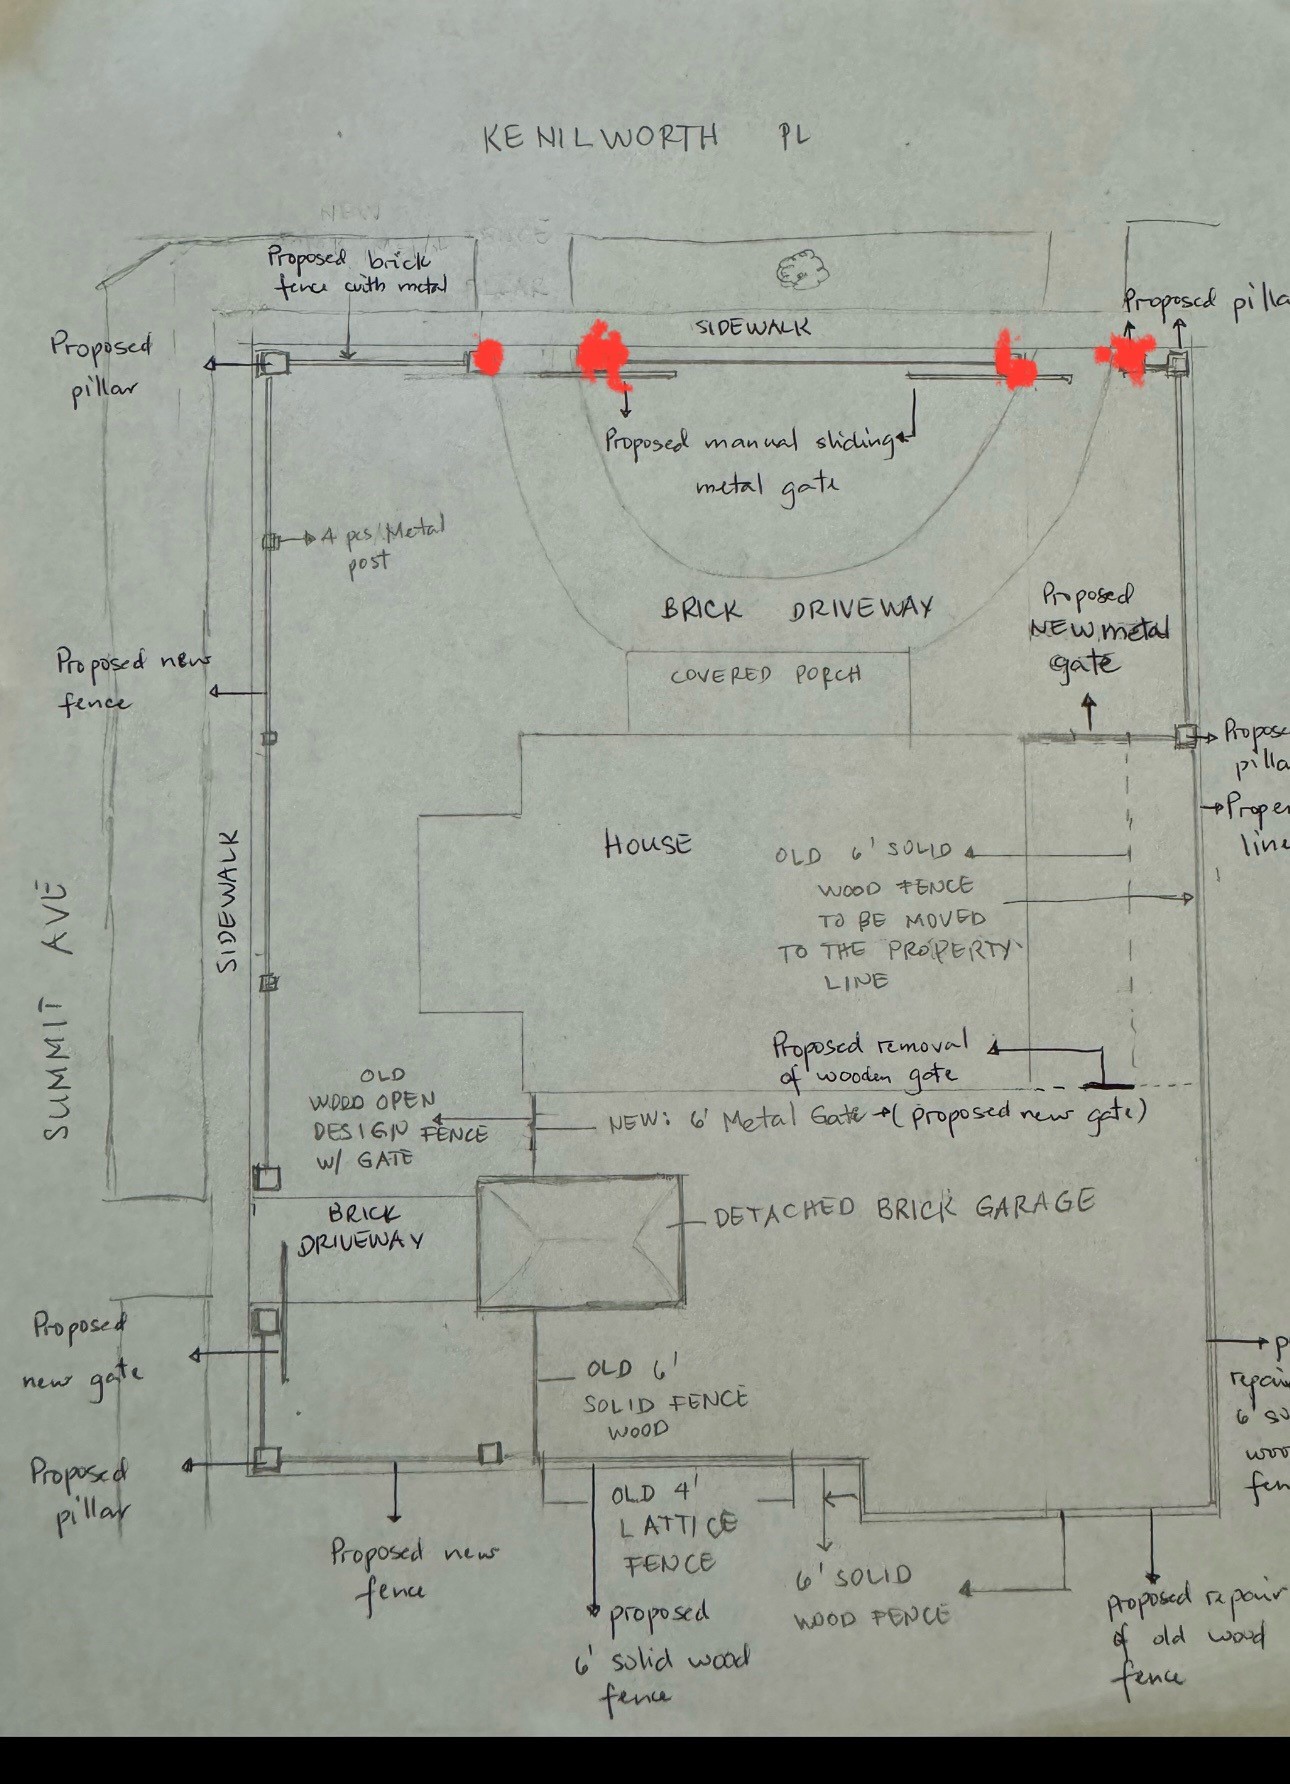 KENILWORTH PL
NEW
Proposed brick
fence with metal
SIDEWALK
Proposed pilla
Proposed
pillar
Proposed manual sliding
metal gate
4 pcs Metal
post
BRICK DRIVEWAY
Proposed
NEW metal
gate
Proposed new
fence
COVERED PORCH
Propose
pilla
Proper
line
HOUSE
OLD 6' SOLID
WOOD FENCE
TO BE MOVED
TO THE PROPERTY
LINE
SIDEWALK
SUMMIT AVE
Proposed removal
of wooden gate
OLD
WOOD OPEN
DESIGN FENCE
W/ GATE
NEW: 6' Metal Gate → (proposed new gate)
DETACHED BRICK GARAGE
BRICK
DRIVEWAY
Proposed
new gate
OLD 6'
SOLID FENCE
WOOD
p
repai
6' so
woo
fen
Proposed
pillar
OLD 4'
LATTICE
FENCE
Proposed new
fence
6' SOLID
WOOD FENCE
proposed
6' solid wood
fence
proposed repair
of old wood
fence